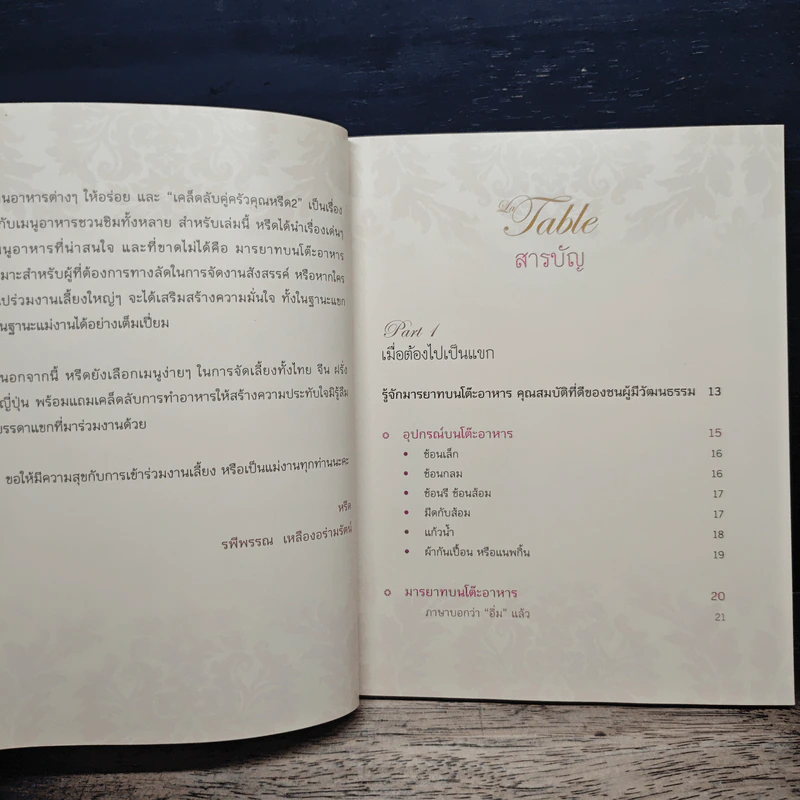 นอาหารต่างๆ ให้อร่อย และ “เคล็ดลับคู่ครัวคุณหรีด2” เป็นเรื่อง
กับเมนูอาหารชวนชิมทั้งหลาย สำหรับเล่มนี้ หรีดได้นำเรื่องเด่นๆ
มนูอาหารที่น่าสนใจ และที่ขาดไม่ได้คือ มารยาทบนโต๊ะอาหาร
มาะสำหรับผู้ที่ต้องการทางลัดในการจัดงานสังสรรค์ หรือหากใคร
ปร่วมงานเลี้ยงใหญ่ๆ จะได้เสริมสร้างความมั่นใจ ทั้งในฐานะแขก
นฐานะแม่งานได้อย่างเต็มเปี่ยม
นอกจากนี้ หรีดยังเลือกเมนูง่ายๆ ในการจัดเลี้ยงทั้งไทย จีน ฝรั่ง
ญี่ปุ่น พร้อมแถมเคล็ดลับการทำอาหารให้สร้างความประทับใจมิรู้ลืม
บรรดาแขกที่มาร่วมงานด้วย
ขอให้มีความสุขกับการเข้าร่วมงานเลี้ยง หรือเป็นแม่งานทุกท่านนะคะ
หรีด
รพีพรรณ เหลืองอร่ามรัตน์
La Table
สารบัญ
Part 1
เมื่อต้องไปเป็นแขก
รู้จักมารยาทบนโต๊ะอาหาร คุณสมบัติที่ดีของชนผู้มีวัฒนธรรม 13
อุปกรณ์บนโต๊ะอาหาร 15
• ช้อนเล็ก 16
• ช้อนกลม 16
• ช้อนรี ช้อนส้อม 17
• มีดกับส้อม 17
• แก้วน้ำ 18
• ผ้ากันเปื้อน หรือแนพกิ้น 19
มารยาทบนโต๊ะอาหาร 20
ภาษาบอกว่า “อิ่ม” แล้ว 21